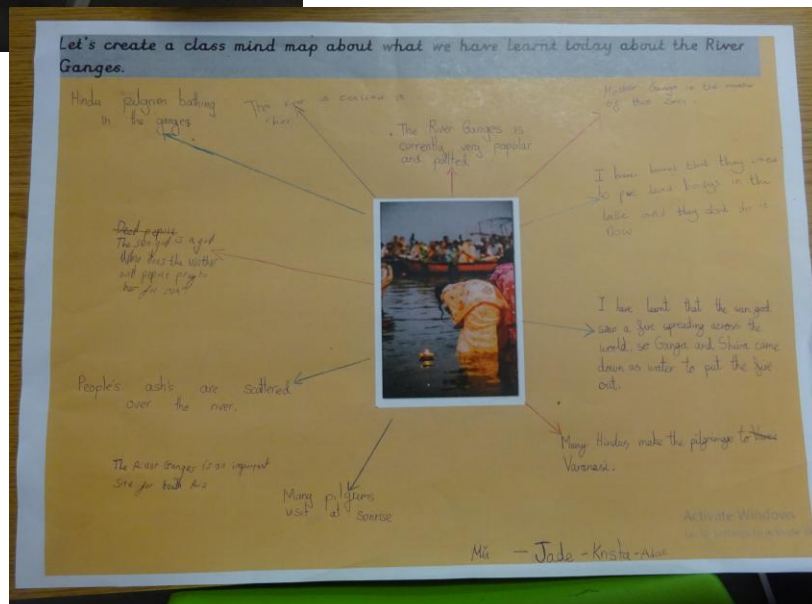 Let's create a class mind map about what we have learnt today about the River
Ganges.
Hindu pilgrim bathing
in the ganges
The river is
The River Ganges is
currently very popular
and polited
Mother Ganga is the
of the
I have learnt that they used
to put dead bodys in the
lake and they dont do it
now
Dead people
The sun god is a god
the
and peoples pray to
her for
I have learnt that the sun god
saw a fire spreading across the
world, so Ganga and Shiva came
down as water to put the fire
out.
People's ash's are scattered
over the river.
Many Hindus make the pilgrimage to
Varanasi.
The River Ganges is an important
site for
Many pilgrams
visit at Sonrise
Activate Windows
Mia - Jade - Krista -